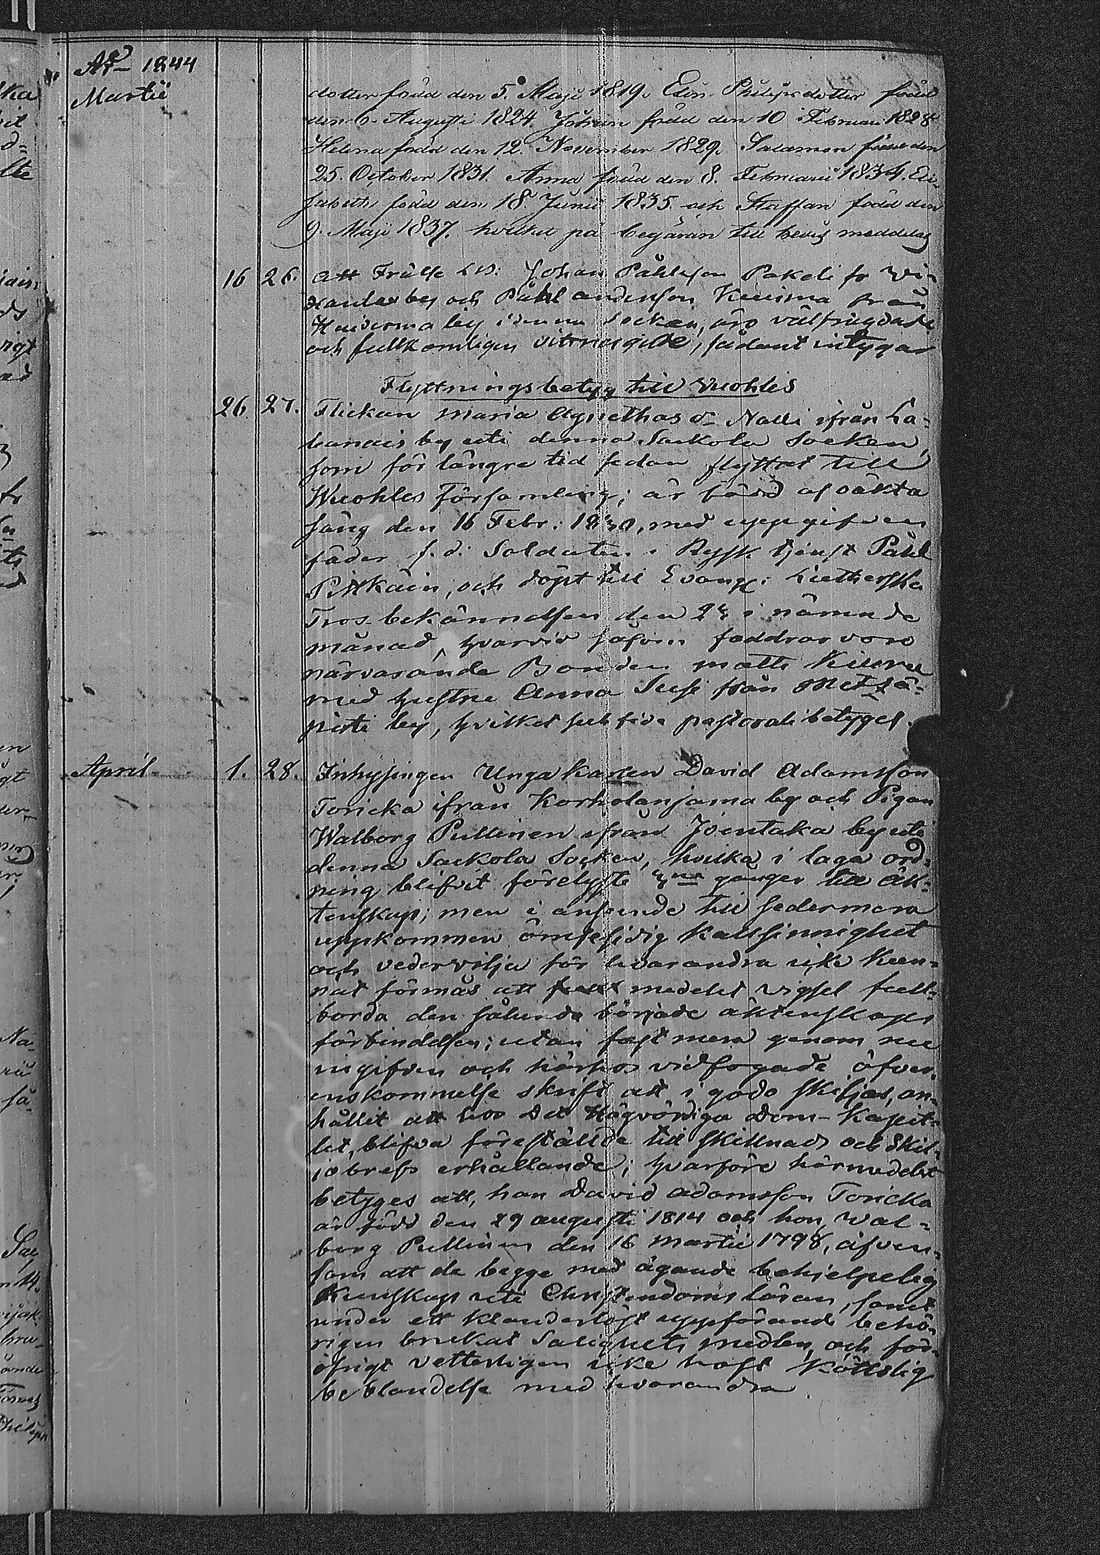 År 1844
Martii
dotter född den 5. Maji 1819. Elin Philipsdotter född
den 6. Augusti 1824. Johan född den 10 Februari 1828
Helena född den 12. November 1829. Salamon född den
25. October 1831. Anna född den 8. Februarii 1834. Eli-
sabeth född den 18 Junii 1835. och Staffan född den
9. Maji 1837. hvilket på begäran till bevis meddelas
16 26. Att Frälse Johan Påhlsson Pakeli
by och Påhl andersson Kuisma från
by i denna Socken, äro välfrägdade
och fullkomligen vitnesgille, sådant intygar
Flyttningsbetyg till Wuohles
26 27. Flickan Maria Agnethas dr Nalli ifrån La-
by uti denna Sackola Socken,
som för längre tid sedan flyttat till
Wuohles Församling; är född af oäkta
säng den 16 Febr: med uppgifven
fader f. d. Soldaten i Rysk tjenst Påhl
Pitkäin, och döpt till Evang: Lutherska
Tros bekännelsen den i nämnde
månad, hvarvid såsom faddrar voro
närvarande Bonden Matts
med hustru Anna Susi från Metsä-
pirti by, hvilket sub fide pastorali betyges.
April 1. 28. Inhysingen Unga Karlen David Adamsson
Toricka ifrån Korholanjama by och Pigan
Walborg Pullinen ifrån Joentaka by uti
denna Sackola Socken, hvilka i laga ord-
ning blifvit förelyste 3ne gånger till äk-
tenskap; men i anseende till sedermera
uppkommen ömsesidig kallsinnighet
och vedervilja för hvarandra icke kun-
nat förmås att medelst vigsel full-
borda den sålunda började äktenskaps
förbindelsen; utan fast mera genom en
ingifven och härhos vidfogade öfver-
enskommelse skrift att i godo skiljas, an-
hållit att hos Det Högvördiga Dom-Kapit-
let, blifva föreställde till skillnad och Skil-
jobrefs erhållande; hvarföre härmedelst
betyges att, han David Adamsson Toricka
är född den 29 augusti 1814 och hon, Wal-
borg Pullinen den 16 Martii 1798, äfven-
som att de begge med ägande behjelpelig
Kunskap uti Christendoms läran, samt
under ett klanderlöst uppförande behö-
rigen brukat Salighets medlen, och för
öfrigt vetterligen icke haft Köttslig
beblandelse med hvarandra.